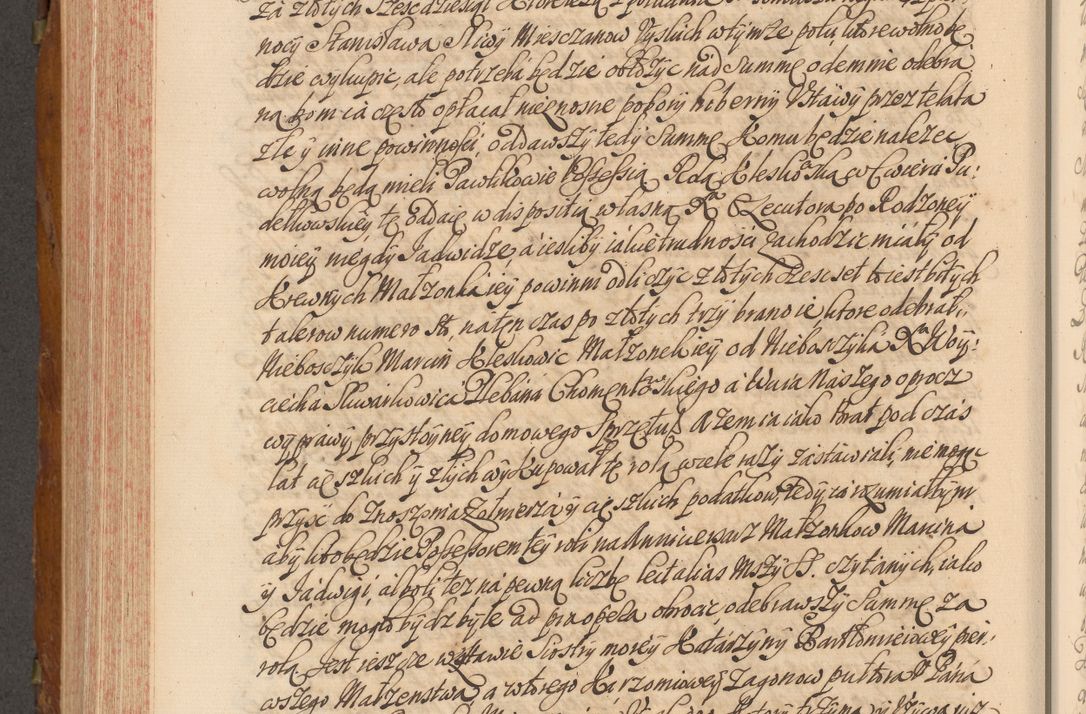 za złotych sześćdziesiąt
nocy Stanisława Sliwy Miesczanow Tyskich w tymże polu, ktore wolno bę
dzie wykupic, ale potrzeba będzie obłożyc nad summę odemnie odebra
ną bom ia często opłacał nieznosne pobory hiberny Ustawy przez te lata
złe y inne powinnosci, oddawszy tedy Summę Komu będzie należec
wolną będą mieli Pawlikowie Possessią Rola Kleskoska w Cwierci Pu:
delkowskiey tę oddaię w dispositią własną X. Executora po Rodzoney
moiey niegdy Jadwidze, a iesliby iakie trudnosci zachodzic miały od
Krewnych Małzonka iey powinni odliczyc złotych sześcset to iest bitych
talerow numero sto, na ten czas po złotych trzy brano ie ktore odebrał,
Nieboszczyk Marcin Kleskowic Małżonek iey od Nieboszczyka X. Woy:
ciecha Sliwarkowica Plebana Chomentowskiego a Wuia Naszego oprocz
wyprawy przystoyney domowego Sprzętu. A żem ia iako brat pod czas
lat cięszkich y złych wykupował tę rolą wiele razy zastawiali, nie mogąc
przyść do znoszenia Zołnierza y cięszkich podatkow, tedy rozumiałbym
aby kto będzie Possessorem tey roli na Anniversarz Małżonkow Marcina
y Jadwigi, albo li też na pewną liczbę lect alias Mszy SS. czytanych, iako
będzie mogło bydz byle ad pia opera obrocic, odebrawszy Summę za
rolą. Jest ieszcze w zastawie Siostry moiey Katarzyny Bartłomieiowey pier,
wszego Małzenstwa, a wtorego Karzomiowey Zagonow pułtora P. Pana